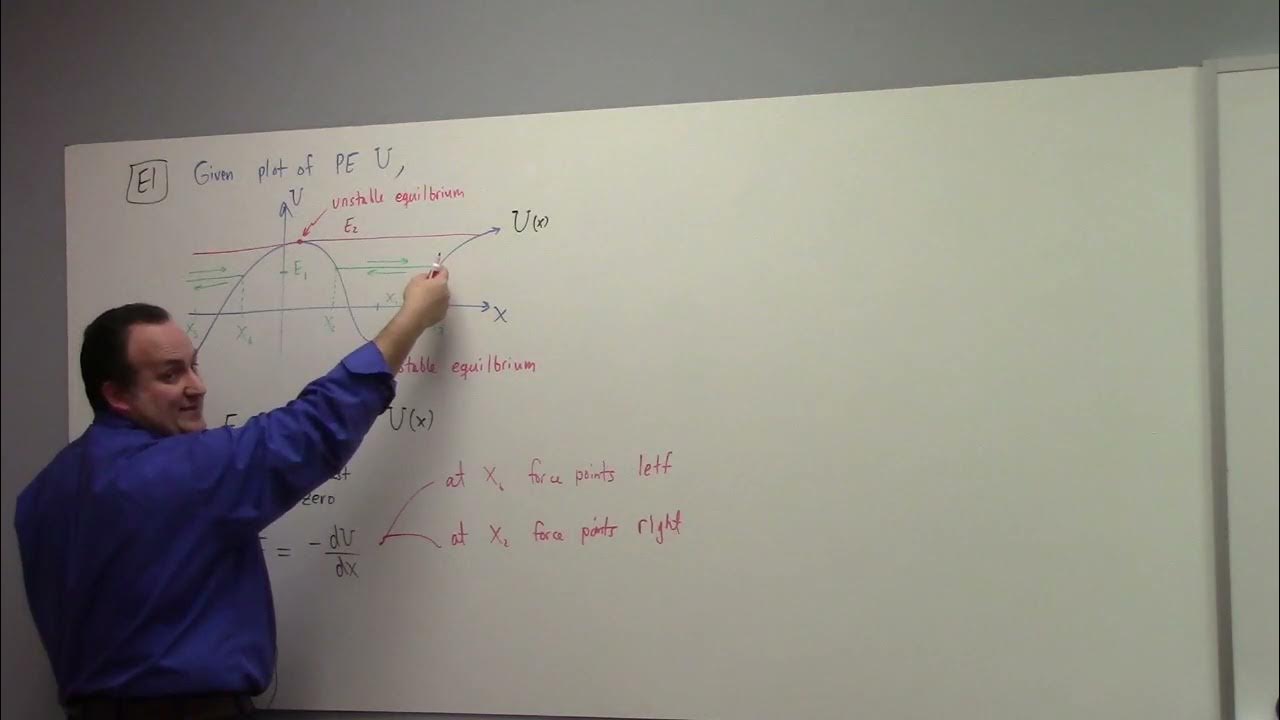 E1 Given plot of PE U,
U
unstable equilbrium
E₂
U(x)
E₁
X₅ X₂ X₁
X
stable equilbrium
U(x)
zero
at X₆ force points letf
= -dU/dx
at X₂ force points right